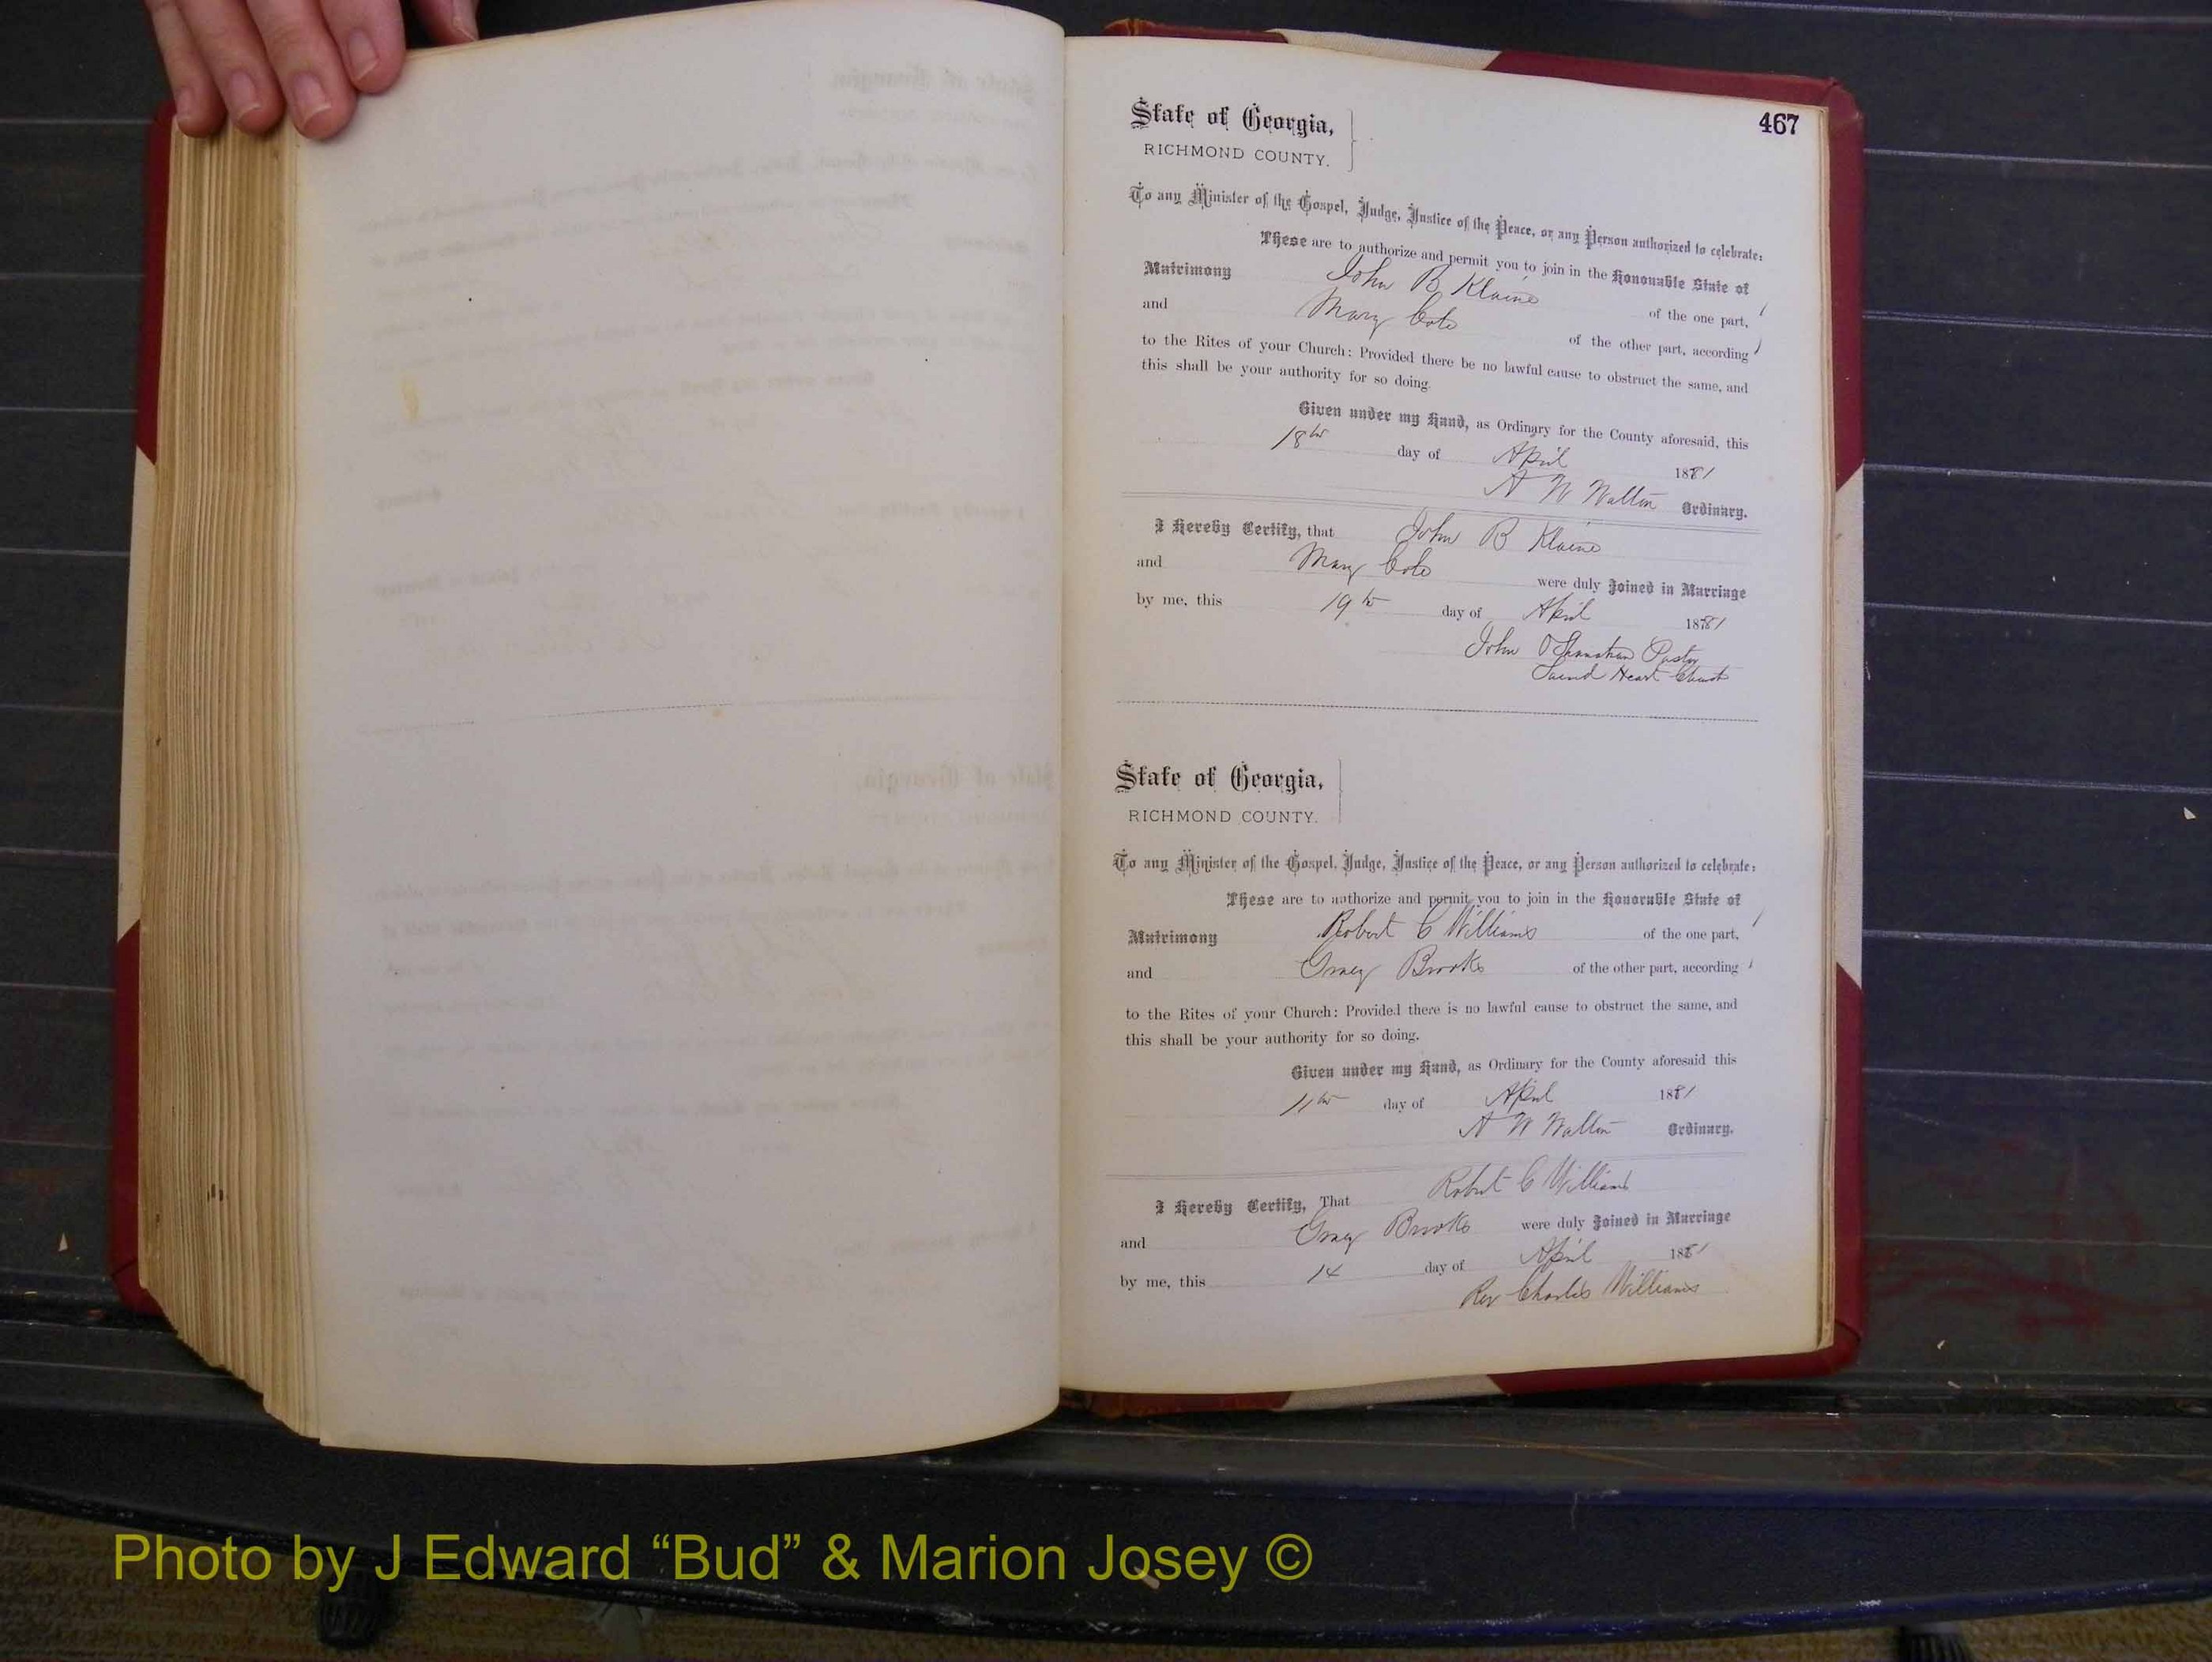 467
State of Georgia,
RICHMOND COUNTY.
To any Minister of the Gospel, Judge, Justice of the Peace, or any Person authorized to celebrate:
These are to authorize and permit you to join in the Honourable State of
Matrimony John B Klaine of the one part,
and Mary Cole of the other part, according
to the Rites of your Church: Provided there be no lawful cause to obstruct the same, and
this shall be your authority for so doing.
Given under my Hand, as Ordinary for the County aforesaid, this
18th day of April 1881
A W Walton Ordinary.
I Hereby Certify, that John B Klaine
and Mary Cole were duly Joined in Marriage
by me, this 19th day of April 1881
John Pastor
Heart Church
State of Georgia,
RICHMOND COUNTY.
To any Minister of the Gospel, Judge, Justice of the Peace, or any Person authorized to celebrate:
These are to authorize and permit you to join in the Honorable State of
Matrimony Robert C Williams of the one part,
and Gracy Brooks of the other part, according
to the Rites of your Church: Provided there is no lawful cause to obstruct the same, and
this shall be your authority for so doing.
Given under my Hand, as Ordinary for the County aforesaid this
11th day of April 1881
A W Walton Ordinary.
I Hereby Certify, That Robert C Williams
and Gracy Brooks were duly Joined in Marriage
by me, this 14 day of April 1881
Rev Charles Williams
Photo by J Edward “Bud” & Marion Josey ©